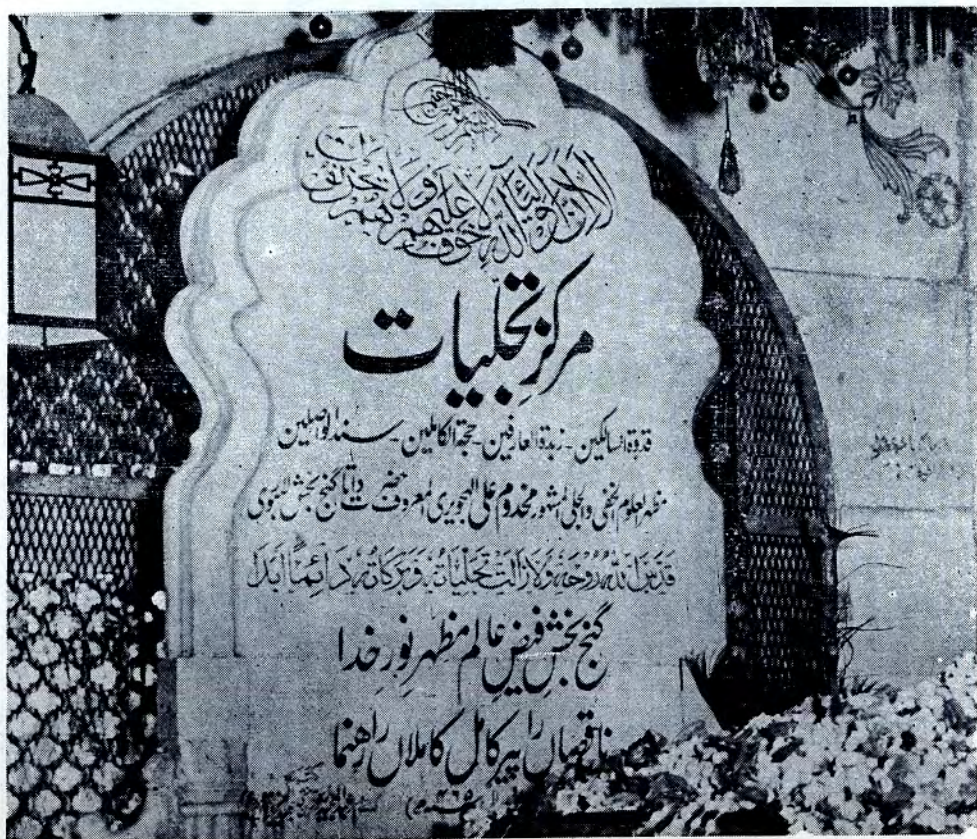 بسم الله الرحمن الرحیم
الا ان اولیاء الله لا خوف علیهم ولا هم یحزنون
مرکزِ تجلیات
قدوۃ السالکین - زبدۃ العارفین - حجۃ الکاملین - سند الواصلین
مظہر العلوم الخفی والجلی المشہور مخدوم علی الہجویری المعروف حضرت داتا گنج بخش
قدس اللہ روحہ ولازالت تجلیاتہ وبرکاتہ دائما ابدا
گنج بخشِ فیضِ عالم مظہرِ نورِ خدا
ناقصاں را پیرِ کامل کاملاں را رہنما